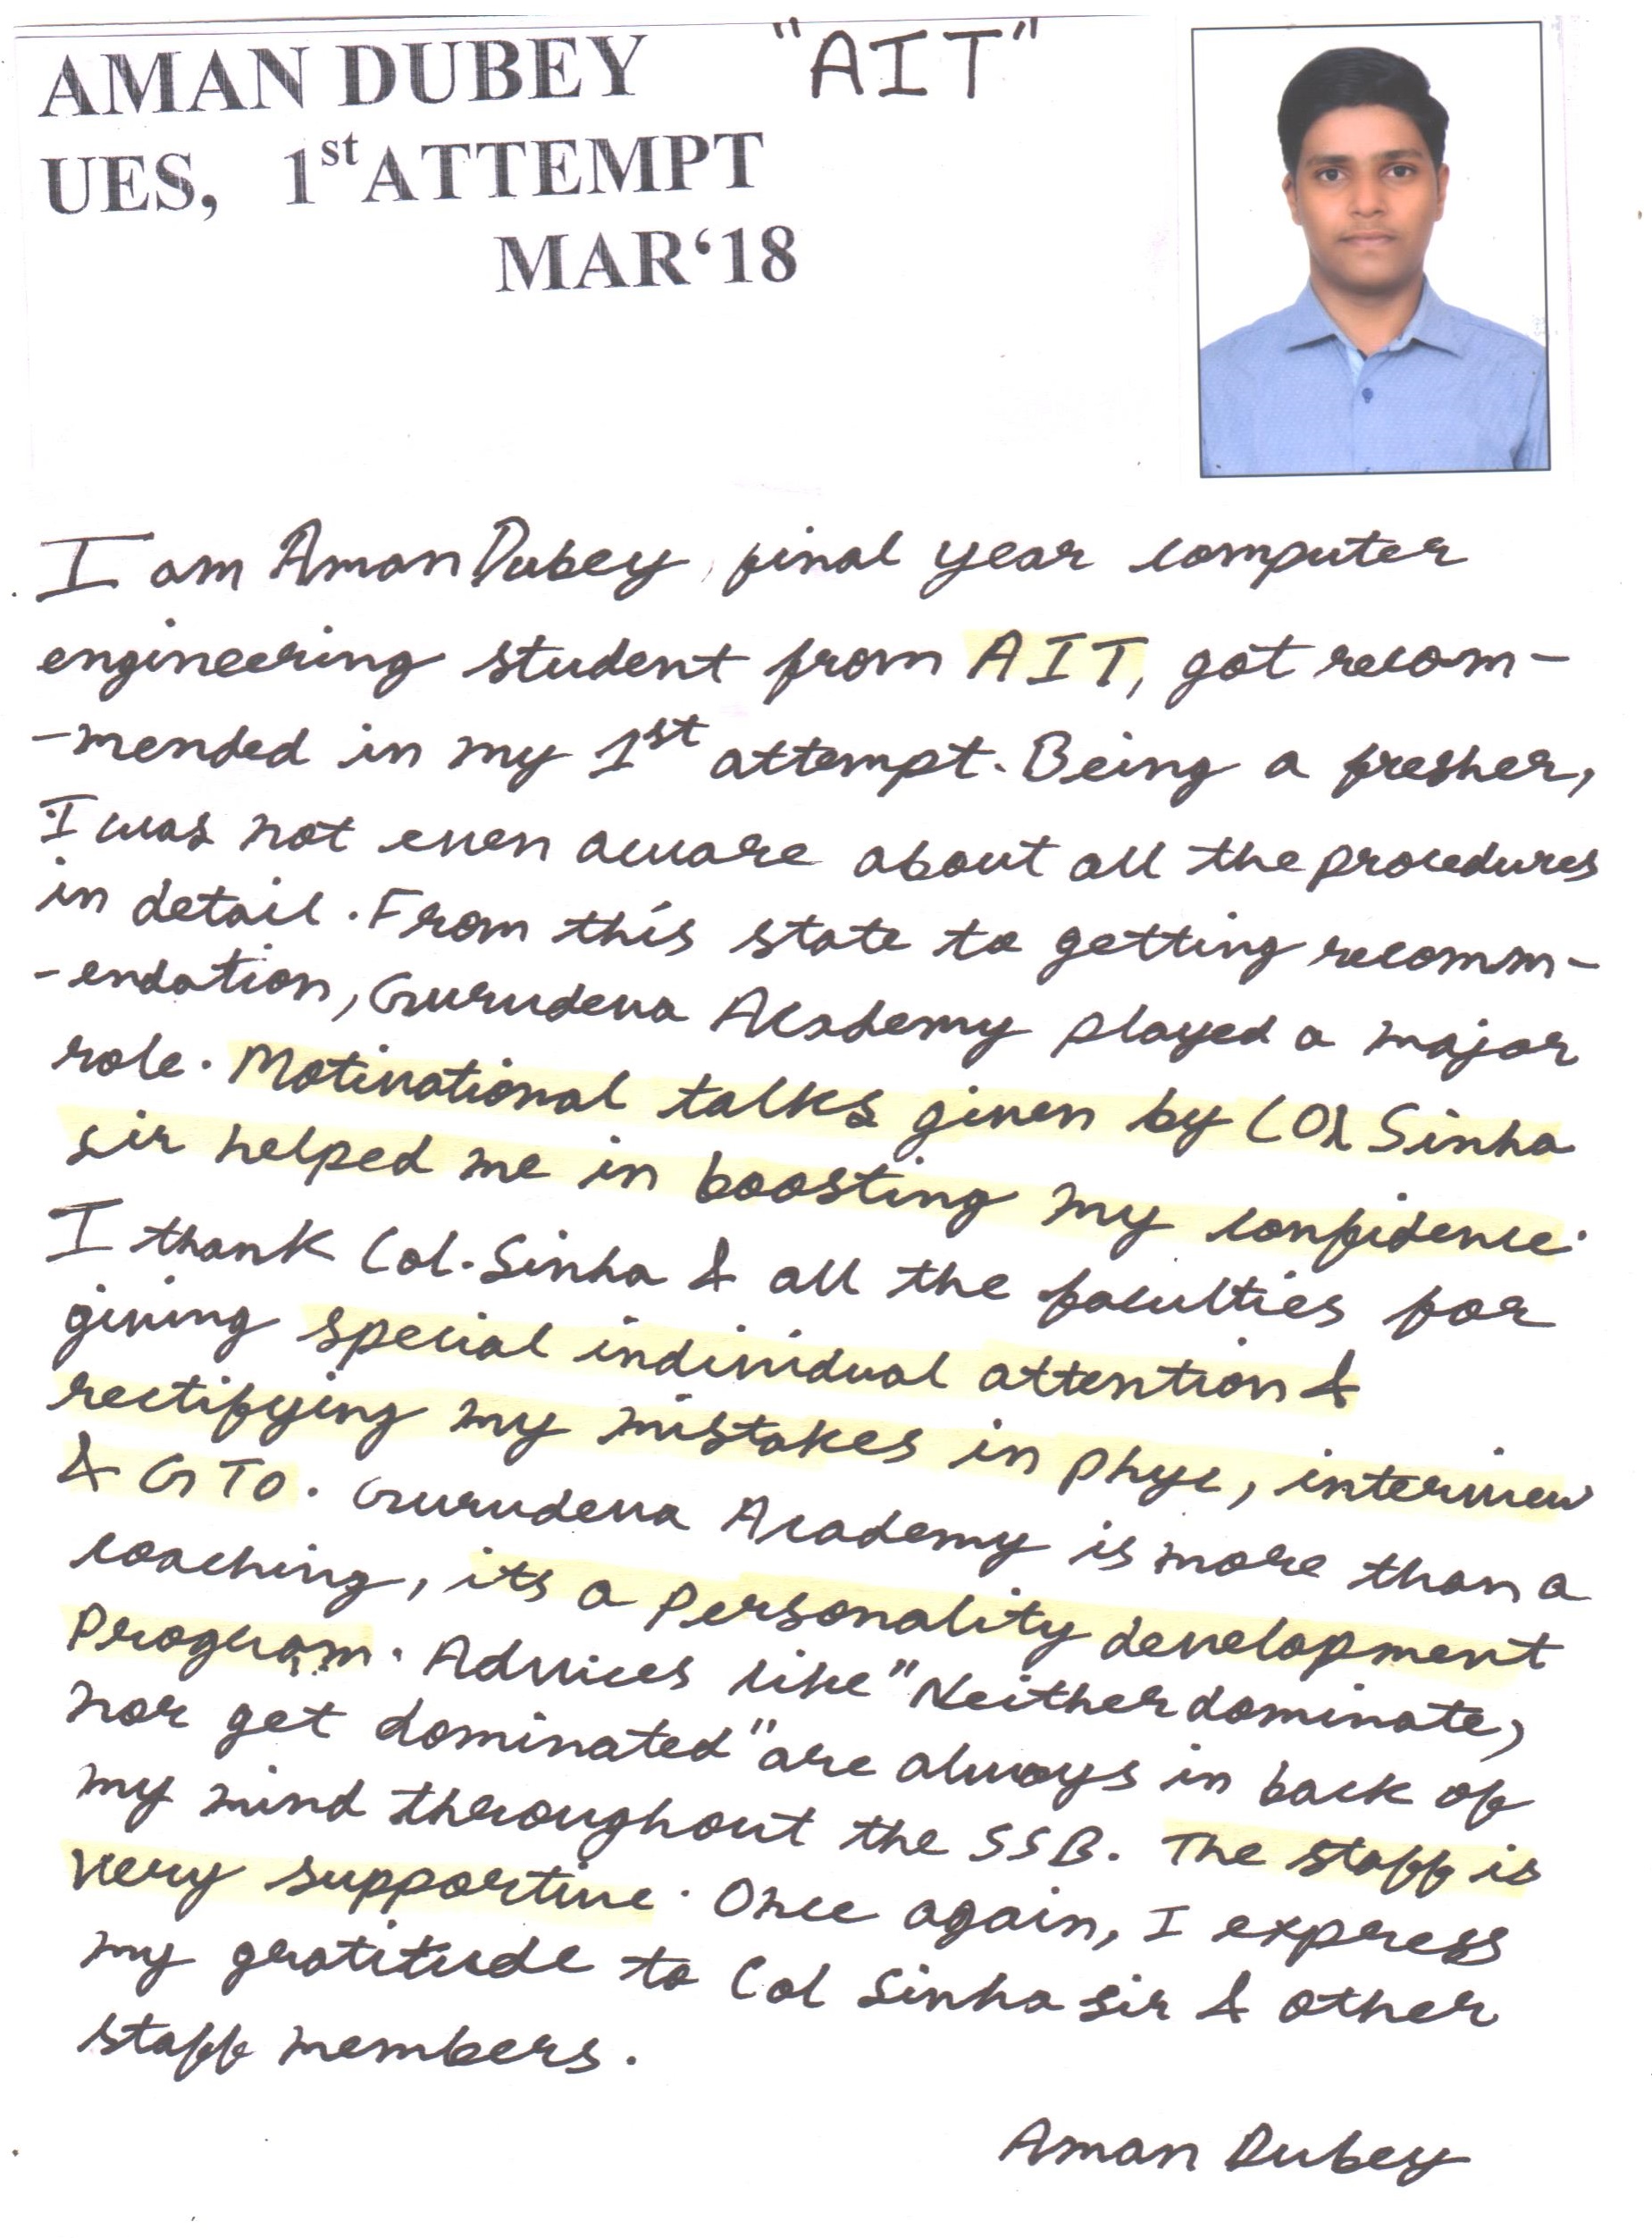 AMAN DUBEY "AIT"
UES, 1st ATTEMPT
MAR‘18
I am Aman Dubey, final year computer
engineering student from AIT, got recom-
-mended in my 1st attempt. Being a fresher,
I was not even aware about all the procedures
in detail. From this state to getting recomm-
-endation, Gurudeva Academy played a major
role. Motivational talks given by COl Sinha
sir helped me in boosting my confidence.
I thank Col. Sinha & all the faculties for
giving special individual attention &
rectifying my mistakes in phyc, interview
& GTO. Gurudeva Academy is more than a
coaching, its a Personality development
Program. Advices like "Neither dominate,
nor get dominated" are always in back of
my mind throughout the SSB. The staff is
very supportive. Once again, I express
my gratitude to Col Sinha sir & other
staff members.
Aman Dubey